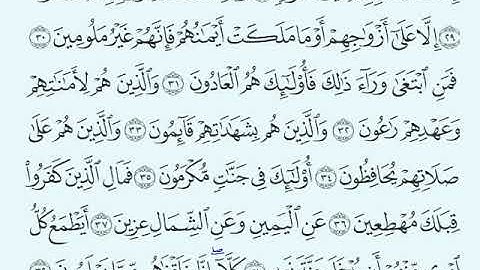 ﴿٢٩﴾ إِلَّا عَلَىٰ أَزْوَاجِهِمْ أَوْ مَا مَلَكَتْ أَيْمَانُهُمْ فَإِنَّهُمْ غَيْرُ مَلُومِينَ ﴿٣٠﴾
فَمَنِ ابْتَغَىٰ وَرَاءَ ذَٰلِكَ فَأُولَٰئِكَ هُمُ الْعَادُونَ ﴿٣١﴾ وَالَّذِينَ هُمْ لِأَمَانَاتِهِمْ
وَعَهْدِهِمْ رَاعُونَ ﴿٣٢﴾ وَالَّذِينَ هُم بِشَهَادَاتِهِمْ قَائِمُونَ ﴿٣٣﴾ وَالَّذِينَ هُمْ عَلَىٰ
صَلَاتِهِمْ يُحَافِظُونَ ﴿٣٤﴾ أُولَٰئِكَ فِي جَنَّاتٍ مُّكْرَمُونَ ﴿٣٥﴾ فَمَالِ الَّذِينَ كَفَرُوا
قِبَلَكَ مُهْطِعِينَ ﴿٣٦﴾ عَنِ الْيَمِينِ وَعَنِ الشِّمَالِ عِزِينَ ﴿٣٧﴾ أَيَطْمَعُ كُلُّ